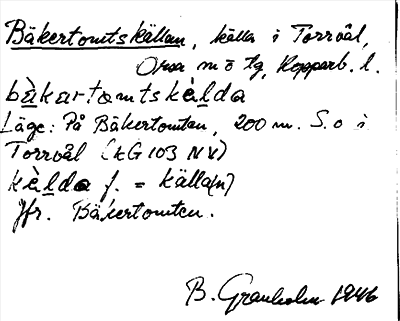 Bäkertomtskällan, källa i Torrvål,
Orsa sn o tg, Kopparb. l.
bàkartomtskèlda
Läge: På Bäkertomten, 200 m. S.o i
Torrvål (KG 103 NV)
kèlda f. = källa(n)
Jfr. Bäkertomten.
B. Granholm 1946